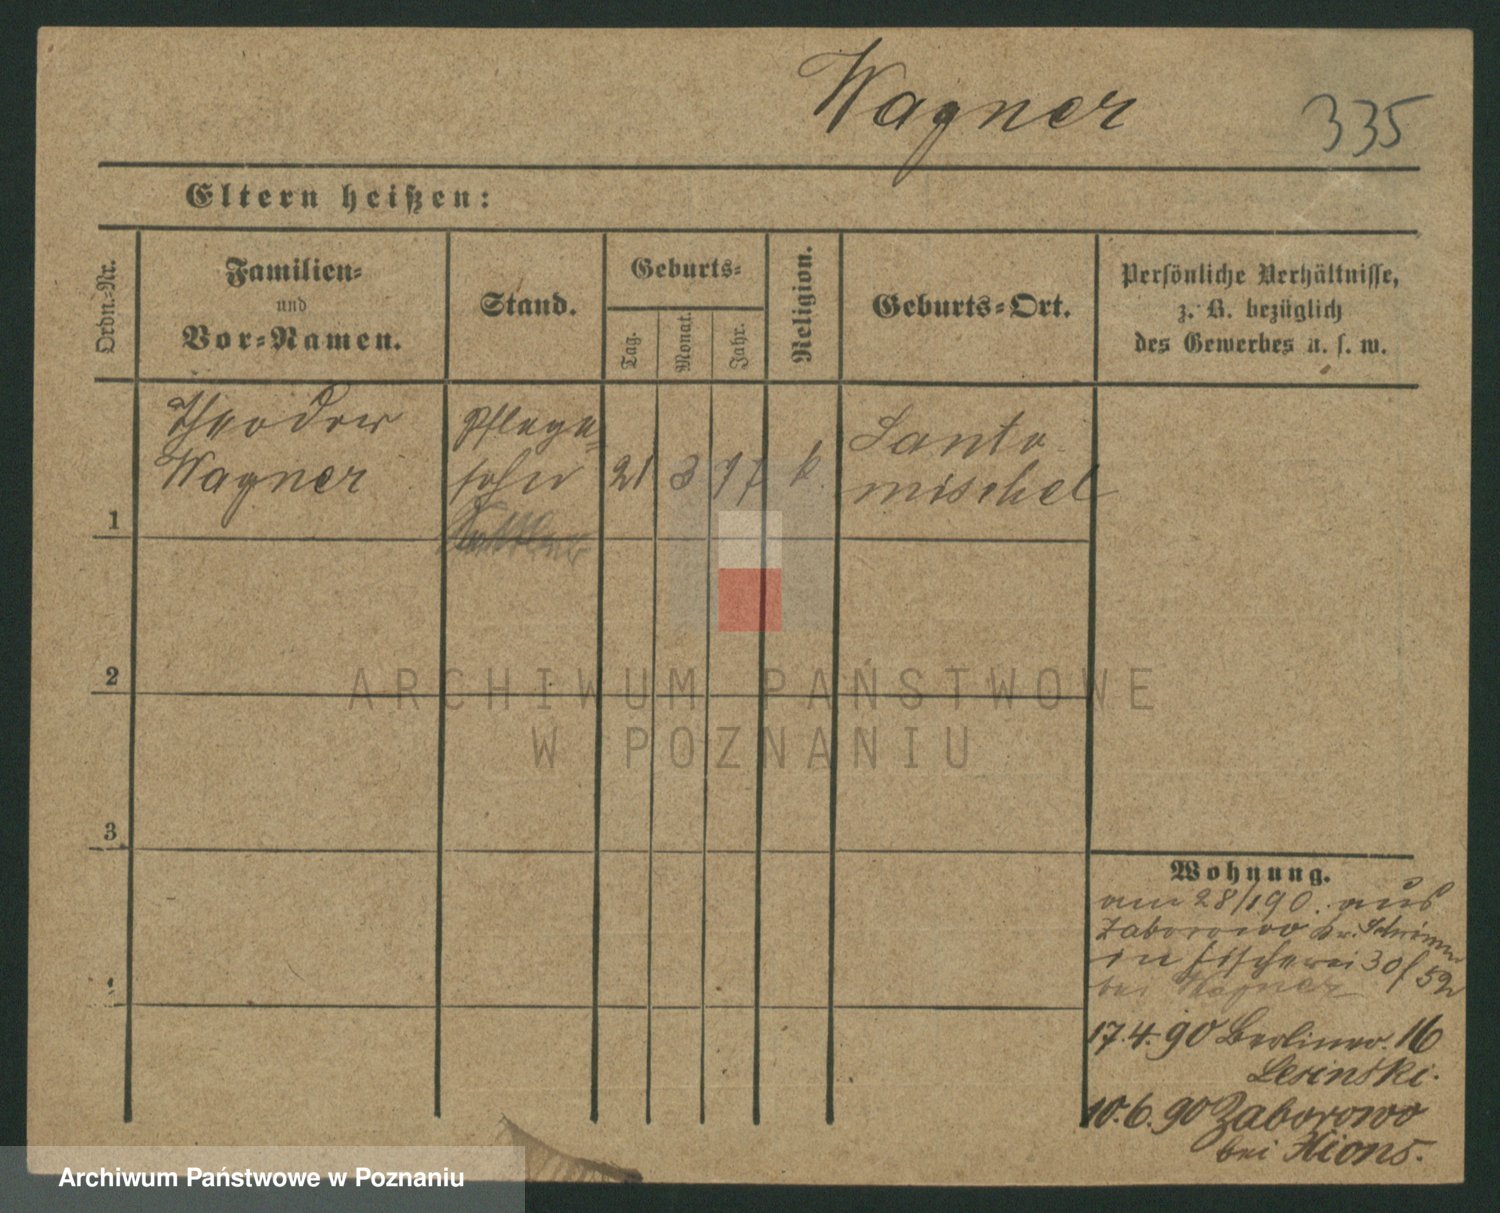 Wagner
335
Eltern heißen:
Ordn.-Nr.
Familien-
und
Vor-Namen.
Stand.
Geburts-
Tag.
Monat.
Jahr.
Religion.
Geburts-Ort.
Persönliche Verhältnisse,
z. B. bezüglich
des Gewerbes u. s. w.
1
Theodor
Wagner
Pflege-
sohn
21
3
k.
Santo
mischel
2
3
4
Wohnung.
am 28/1 90. aus
Zaborowo Kr. Schrimm
in Fischerei 30/
bei Wagner
17.4.90 Berliner. 16
Lesinski.
10.6.90 Zaborowo
bei Xions.
ARCHIWUM PAŃSTWOWE
W POZNANIU
Archiwum Państwowe w Poznaniu